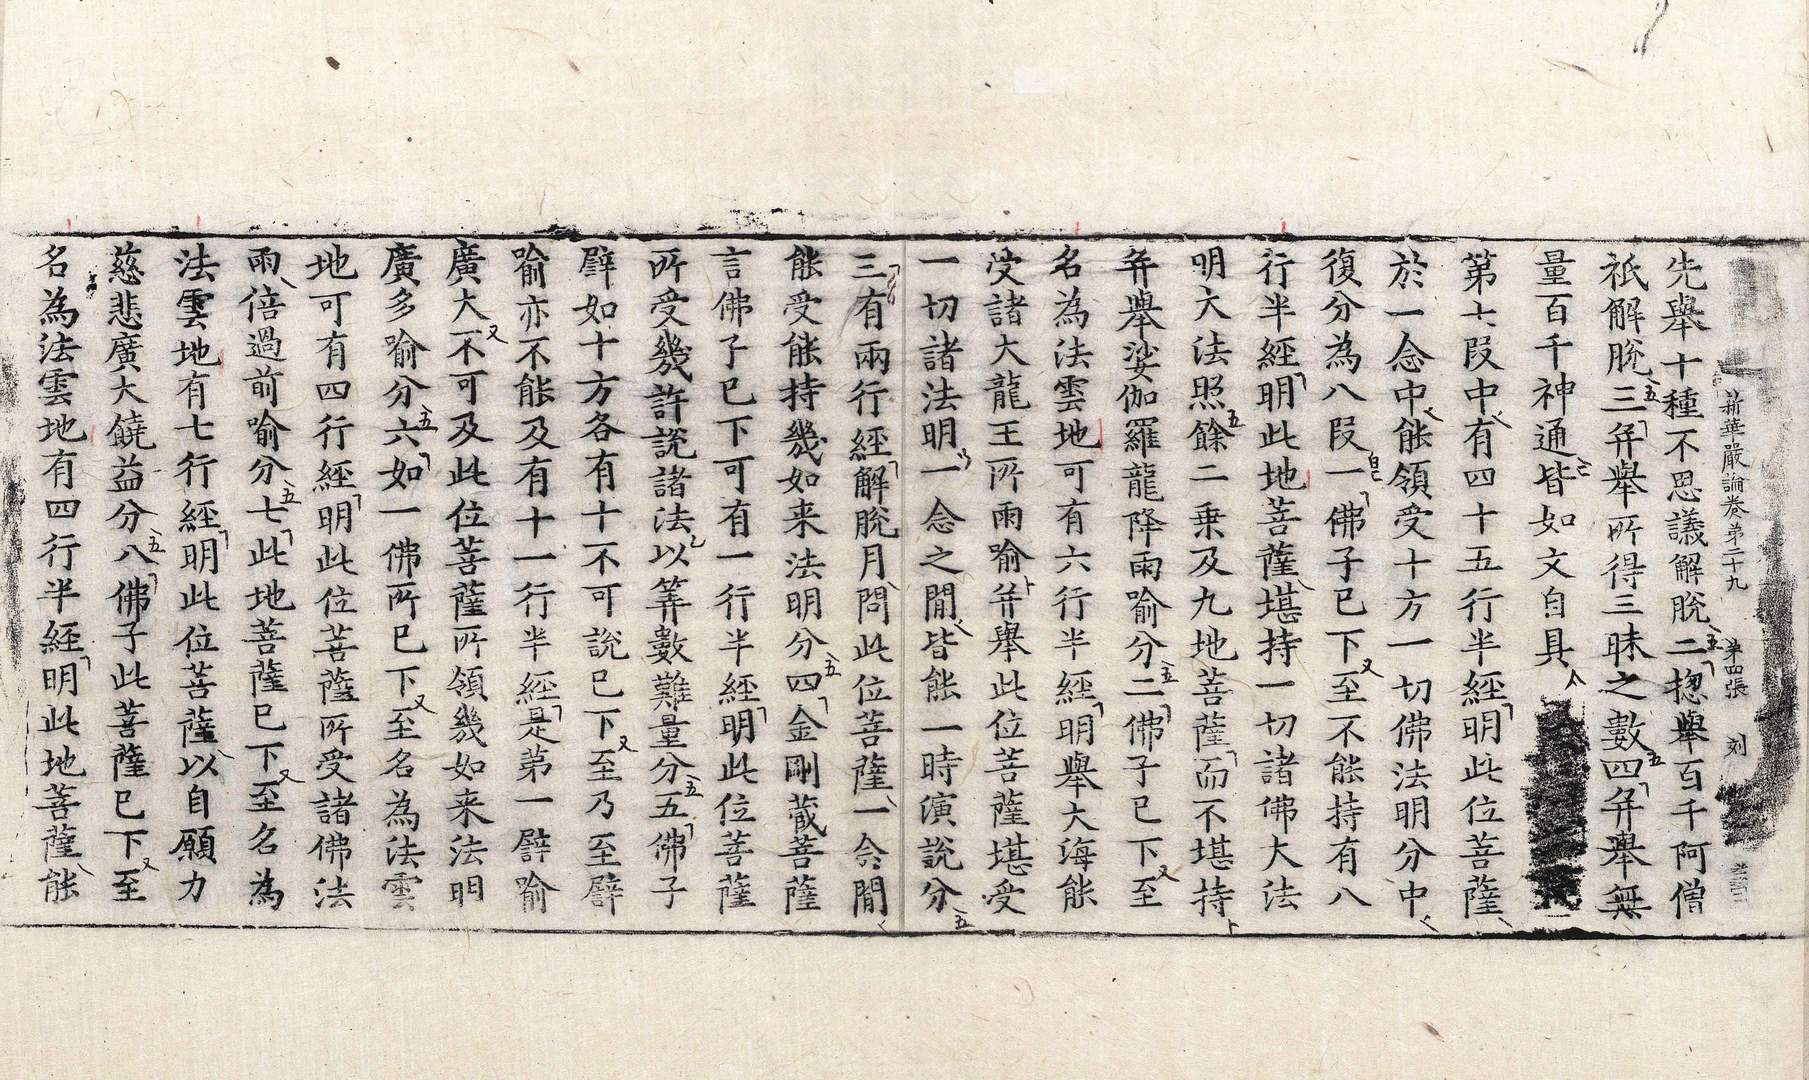 新華嚴論卷第二十九 第四張 刻
先舉十種不思議解脫二揔舉百千阿僧
祇解脫三弁舉所得三昧之數四弁舉無
量百千神通皆如文自具
第七段中有四十五行半經明此位菩薩
於一念中能領受十方一切佛法明分中
復分為八段一佛子已下至不能持有八
行半經明此地菩薩堪持一切諸佛大法
明大法照餘二乗及九地菩薩而不堪持
弁舉娑伽羅龍降雨喻分二佛子已下至
名為法雲地可有六行半經明舉大海能
受諸大龍王所雨喻弁舉此位菩薩堪受
一切諸法明一念之間皆能一時演說分
三有兩行經解脫月問此位菩薩一念間
能受能持幾如来法明分四金剛蔵菩薩
言佛子已下可有一行半經明此位菩薩
所受幾許說諸法以筭數難量分五佛子
譬如十方各有十不可說已下至乃至譬
喻亦不能及有十一行半經是第一譬喻
廣大不可及此位菩薩所領幾如来法明
廣多喻分六如一佛所已下至名為法雲
地可有四行經明此位菩薩所受諸佛法
雨倍過前喻分七此地菩薩已下至名為
法雲地有七行經明此位菩薩以自願力
慈悲廣大饒益分八佛子此菩薩已下至
名為法雲地有四行半經明此地菩薩能